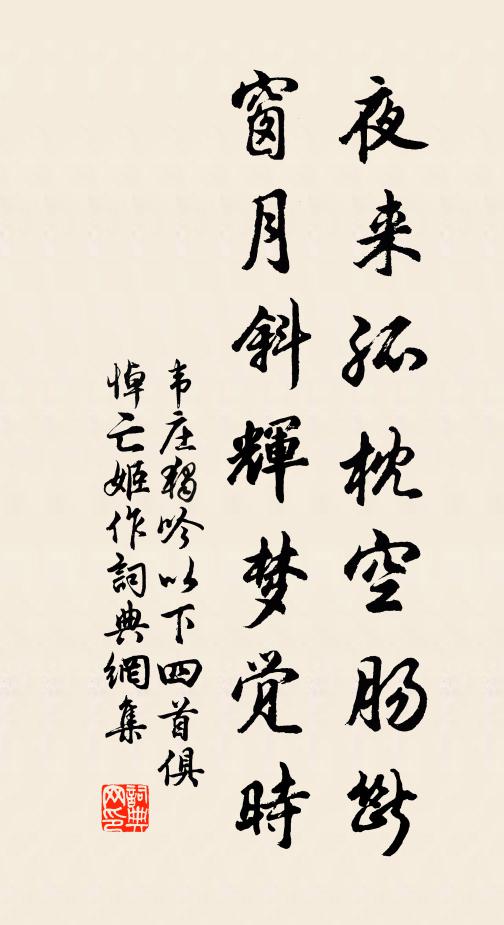 夜来孤枕空肠断
窗月斜輝梦觉時
韦庄獨吟以下四首俱
悼亡姬作詞典網集
詞典网印